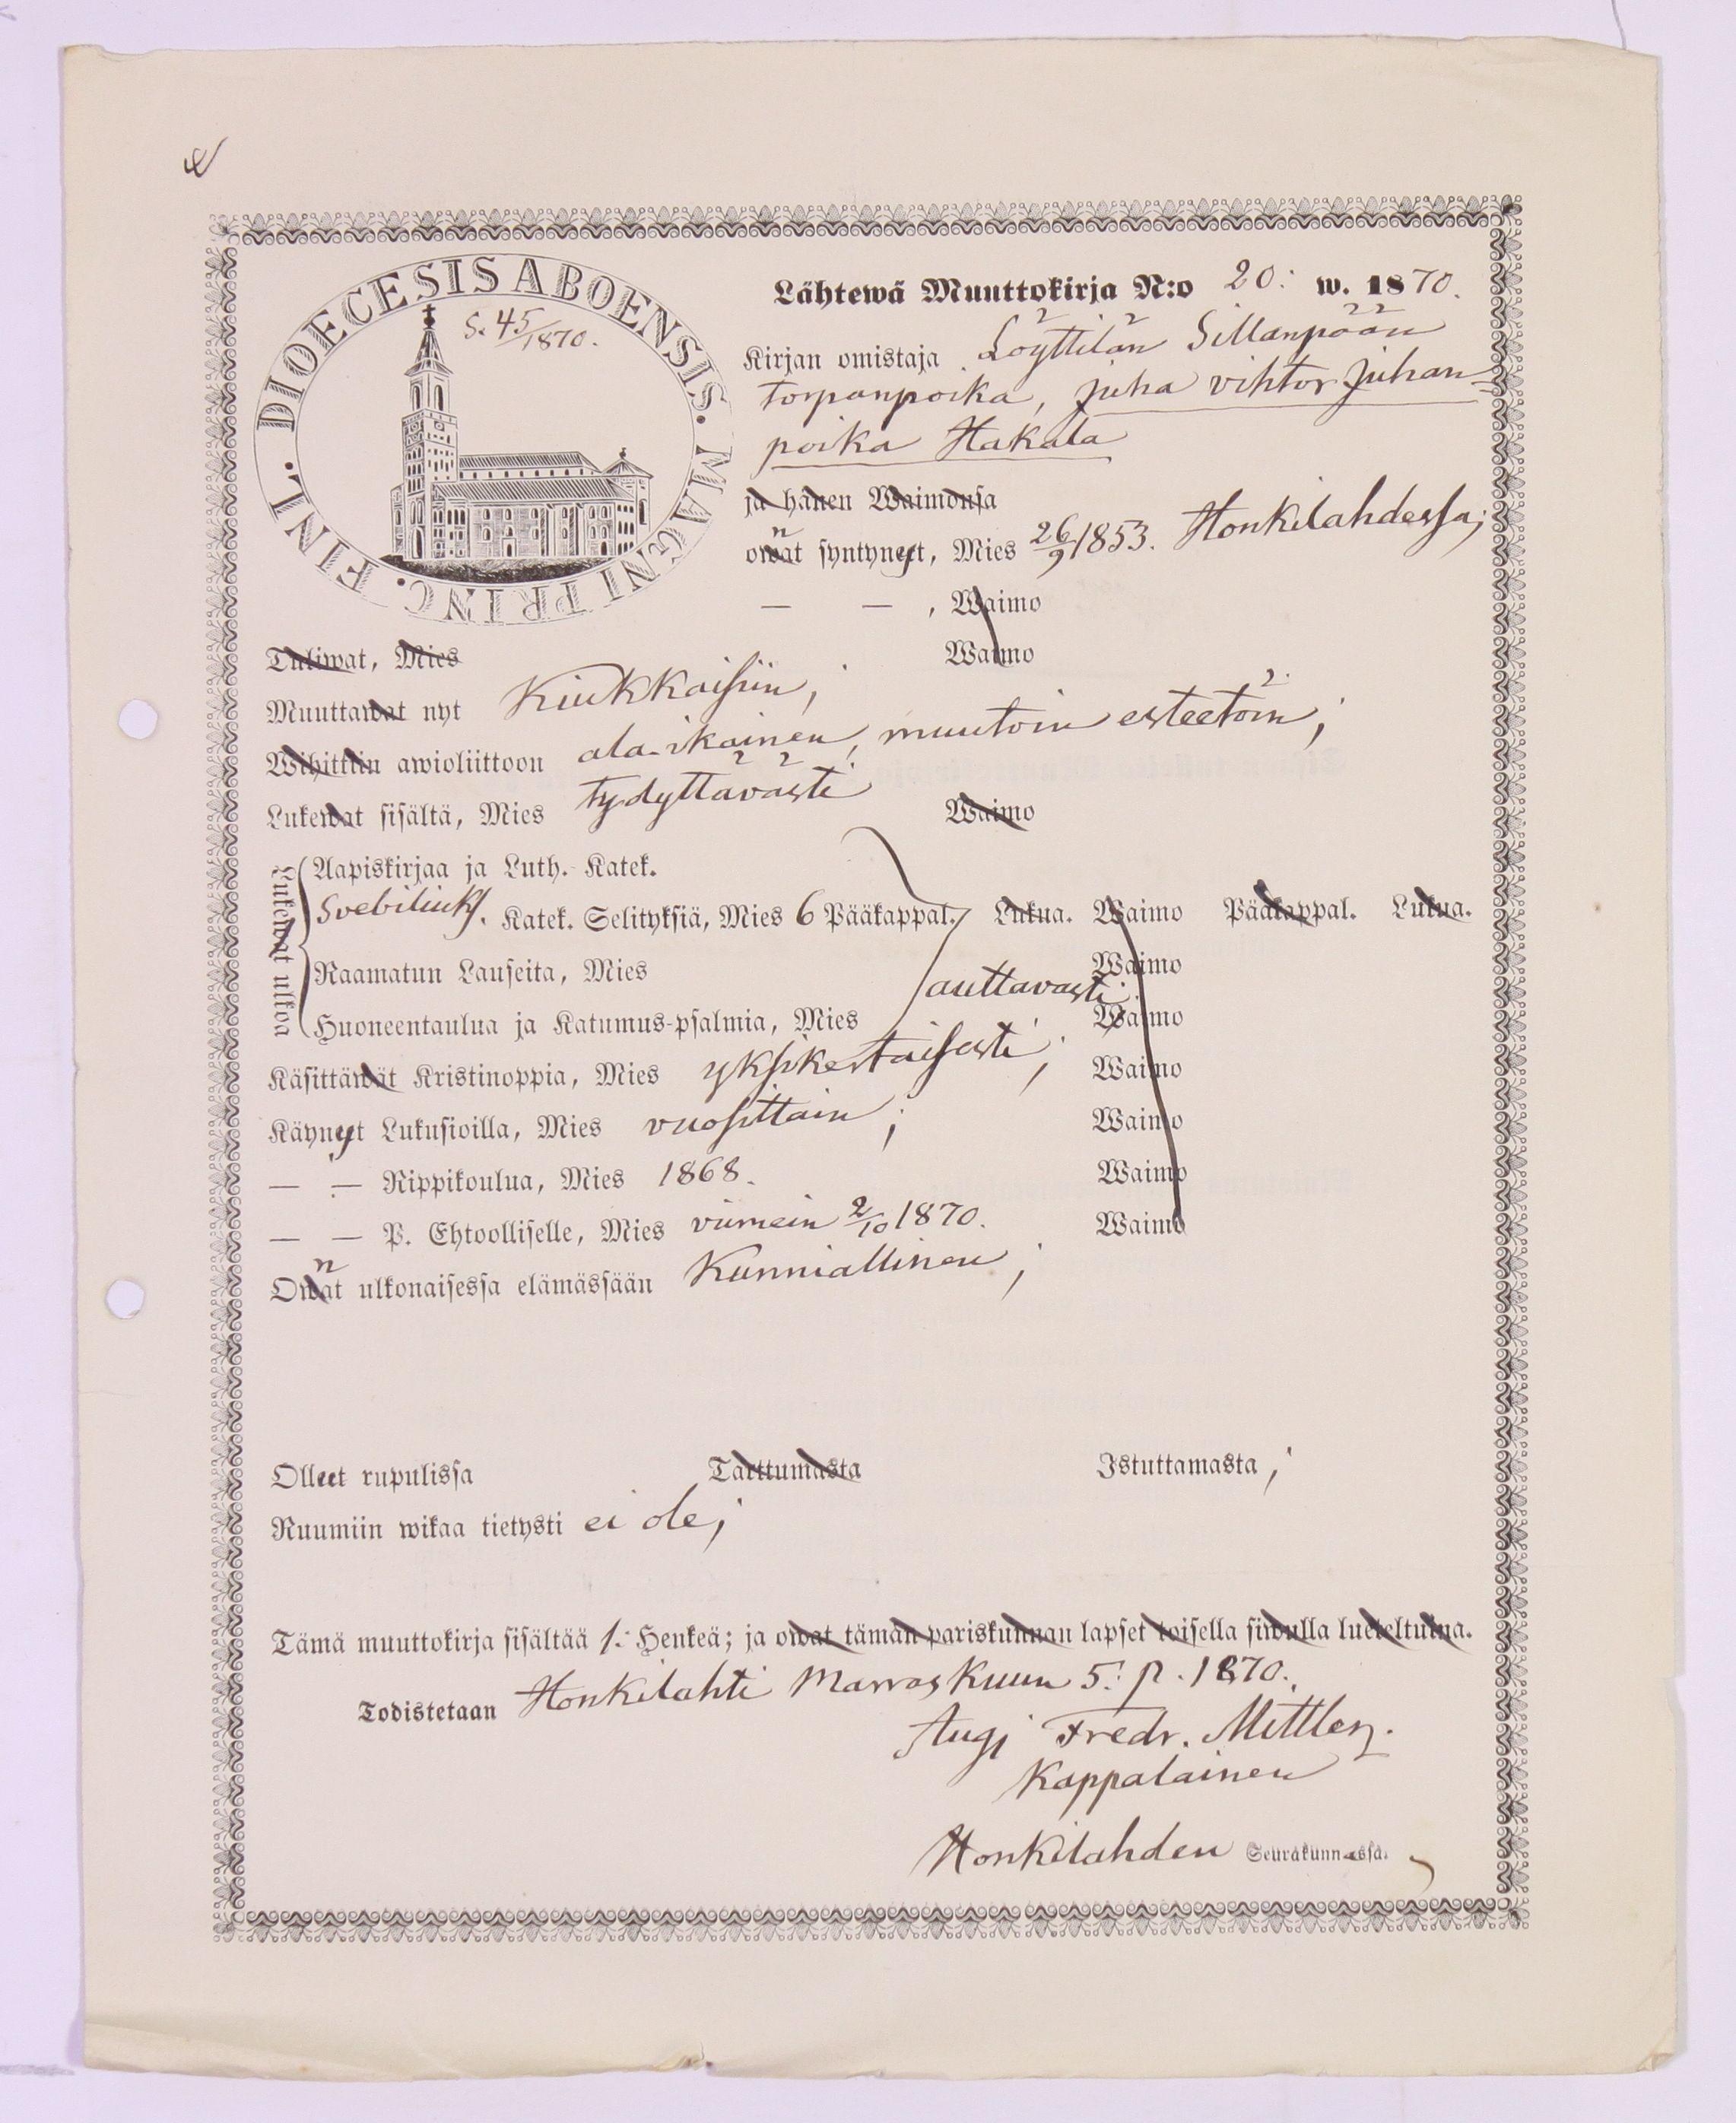 DIOECESIS ABOENSIS. MAGNI PRINC. FINL.
S. 45/1870.
Lähtewä Muuttokirja N:o 20. w. 1870.
Kirjan omistaja Löyttilän Sillanpään
torpanpoika, Juha Vihtor Juhan-
poika Hakala
ja hänen Waimonsa
owat syntynyt, Mies 26/9 1853. Honkilahdessa;
— — , Waimo
Tuliwat, Mies Waimo
Muuttawat nyt Kiukkaisiin;
Wihittiin awioliittoon ala-ikäinen, muutoin esteetöin;
Lukewat sisältä, Mies tydyttävästi Waimo
Lukewat ulkoa
Aapiskirjaa ja Luth. Katek.
Svebiliuks. Katek. Selityksiä, Mies 6 Pääkappal. Lukua. Waimo Pääkappal. Lukua.
Raamatun Lauseita, Mies Waimo
auttavasti;
Huoneentaulua ja Katumus-psalmia, Mies Waimo
Käsittäwät Kristinoppia, Mies yksikertaisesti; Waimo
Käynyt Lukusioilla, Mies vuosittain; Waimo
— — Rippikoulua, Mies 1868. Waimo
— — P. Ehtoolliselle, Mies viimein 2/10 1870. Waimo
Owat ulkonaisessa elämässään Kunniallinen;
Olleet rupulissa Tarttumasta Istuttamasta;
Ruumiin wikaa tietysti ei ole;
Tämä muuttokirja sisältää 1. Henkeä; ja owat tämän pariskunnan lapset toisella siwulla lueteltuina.
Todistetaan Honkilahti Marraskuun 5. p. 1870.
Fredr. Mittler.
Kappalainen
Honkilahden Seurakunnassa.